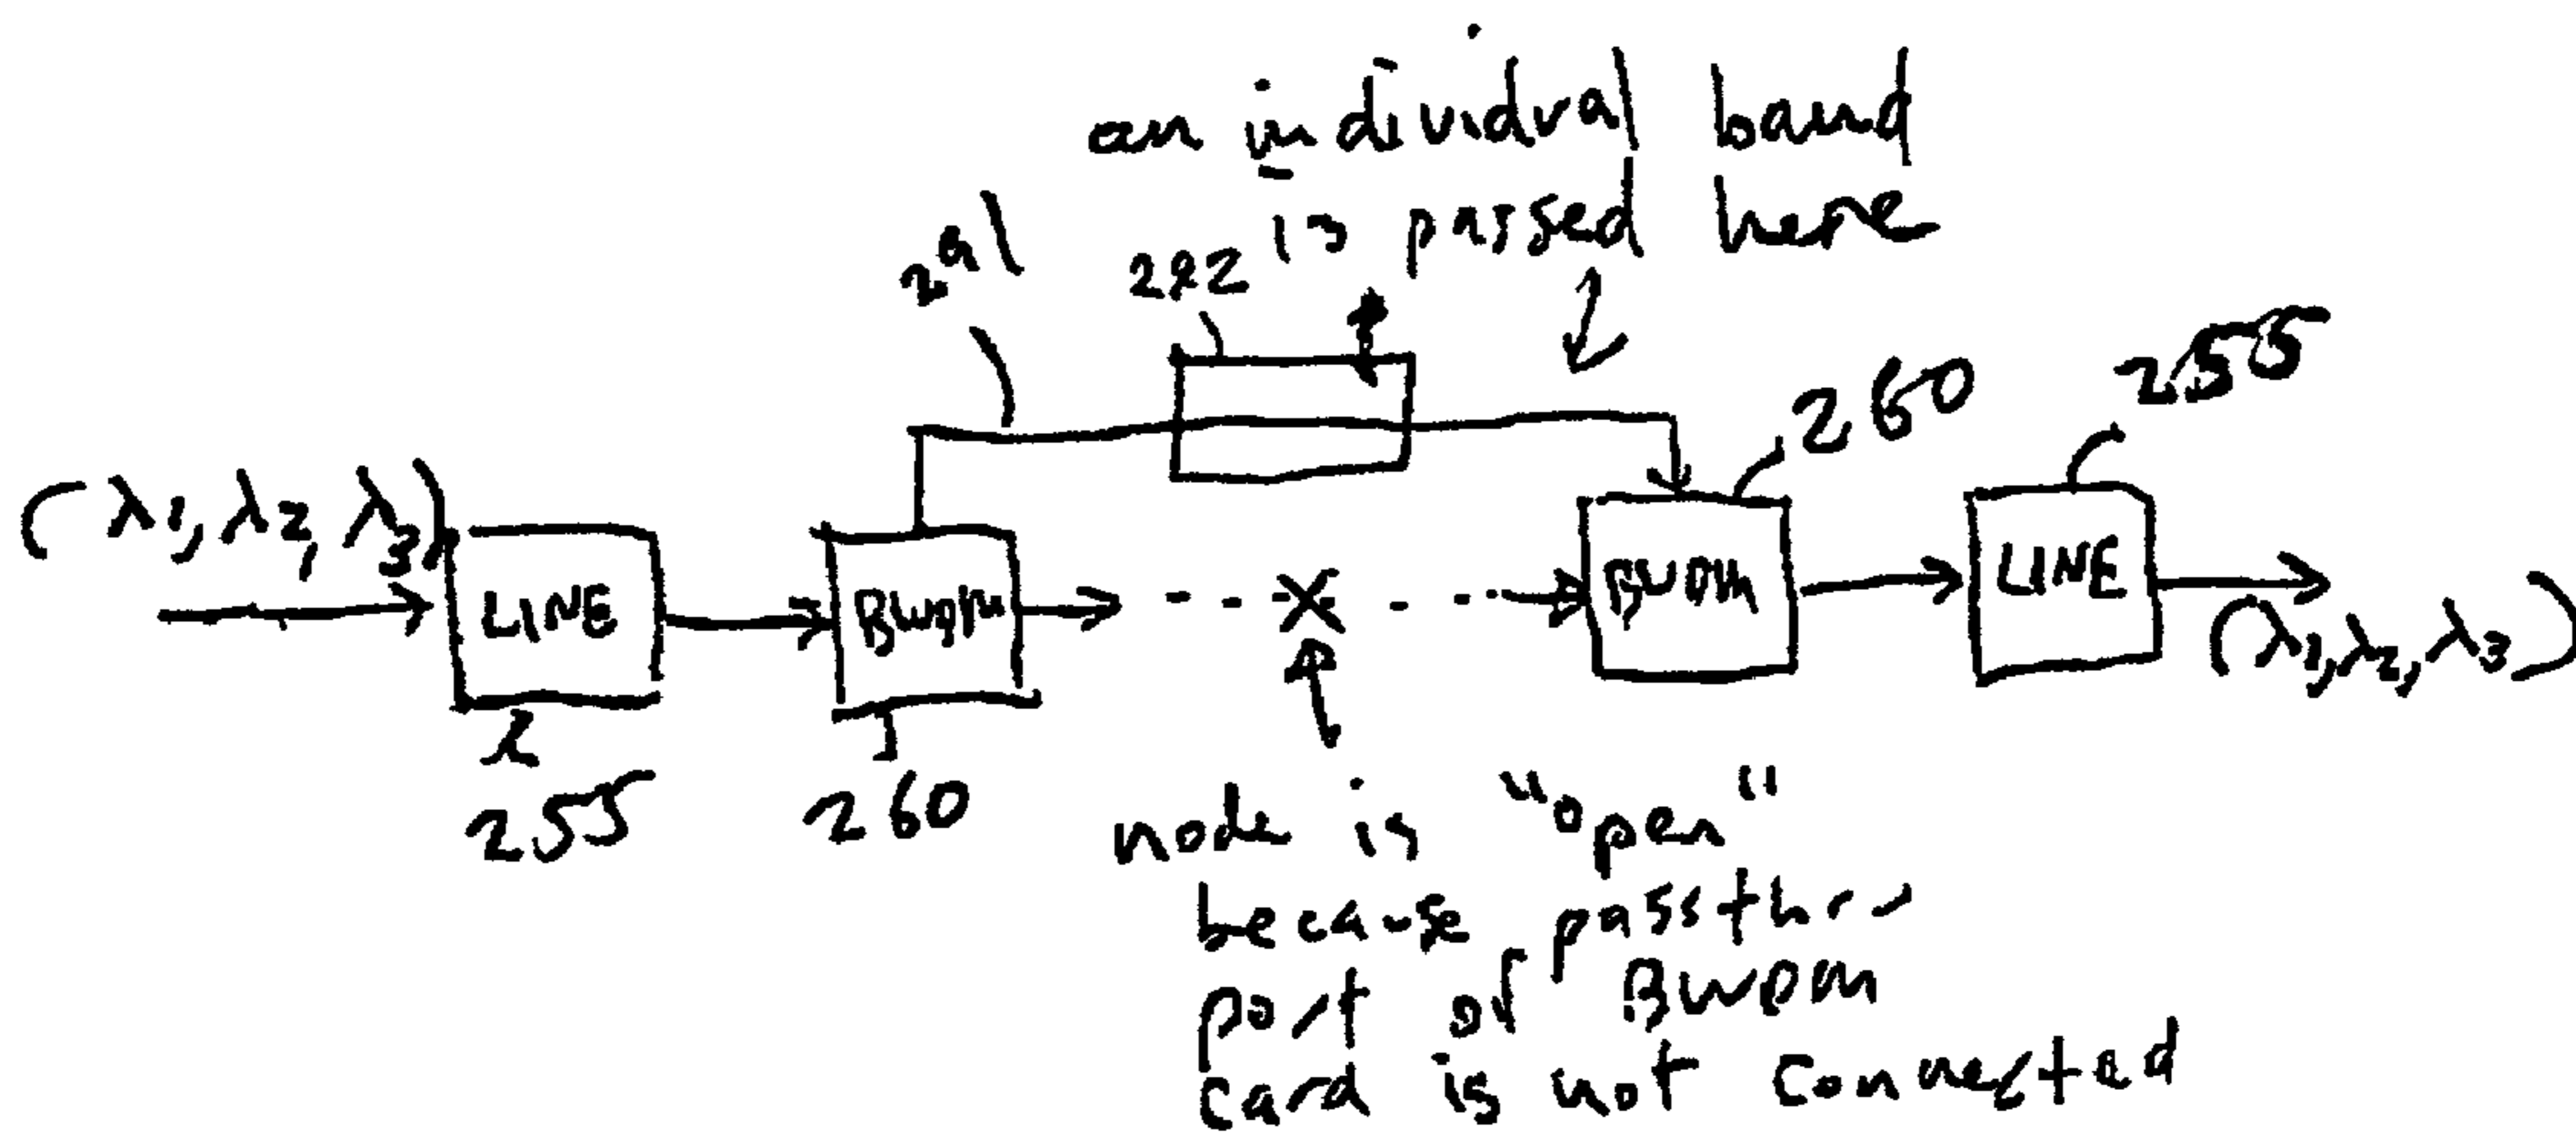 an individual band
is passed here
291
292
260
255
(λ1, λ2, λ3)
LINE
BWDM
BWDM
LINE
(λ1, λ2, λ3)
255
260
node is "open"
because passthru
port of BWDM
card is not connected